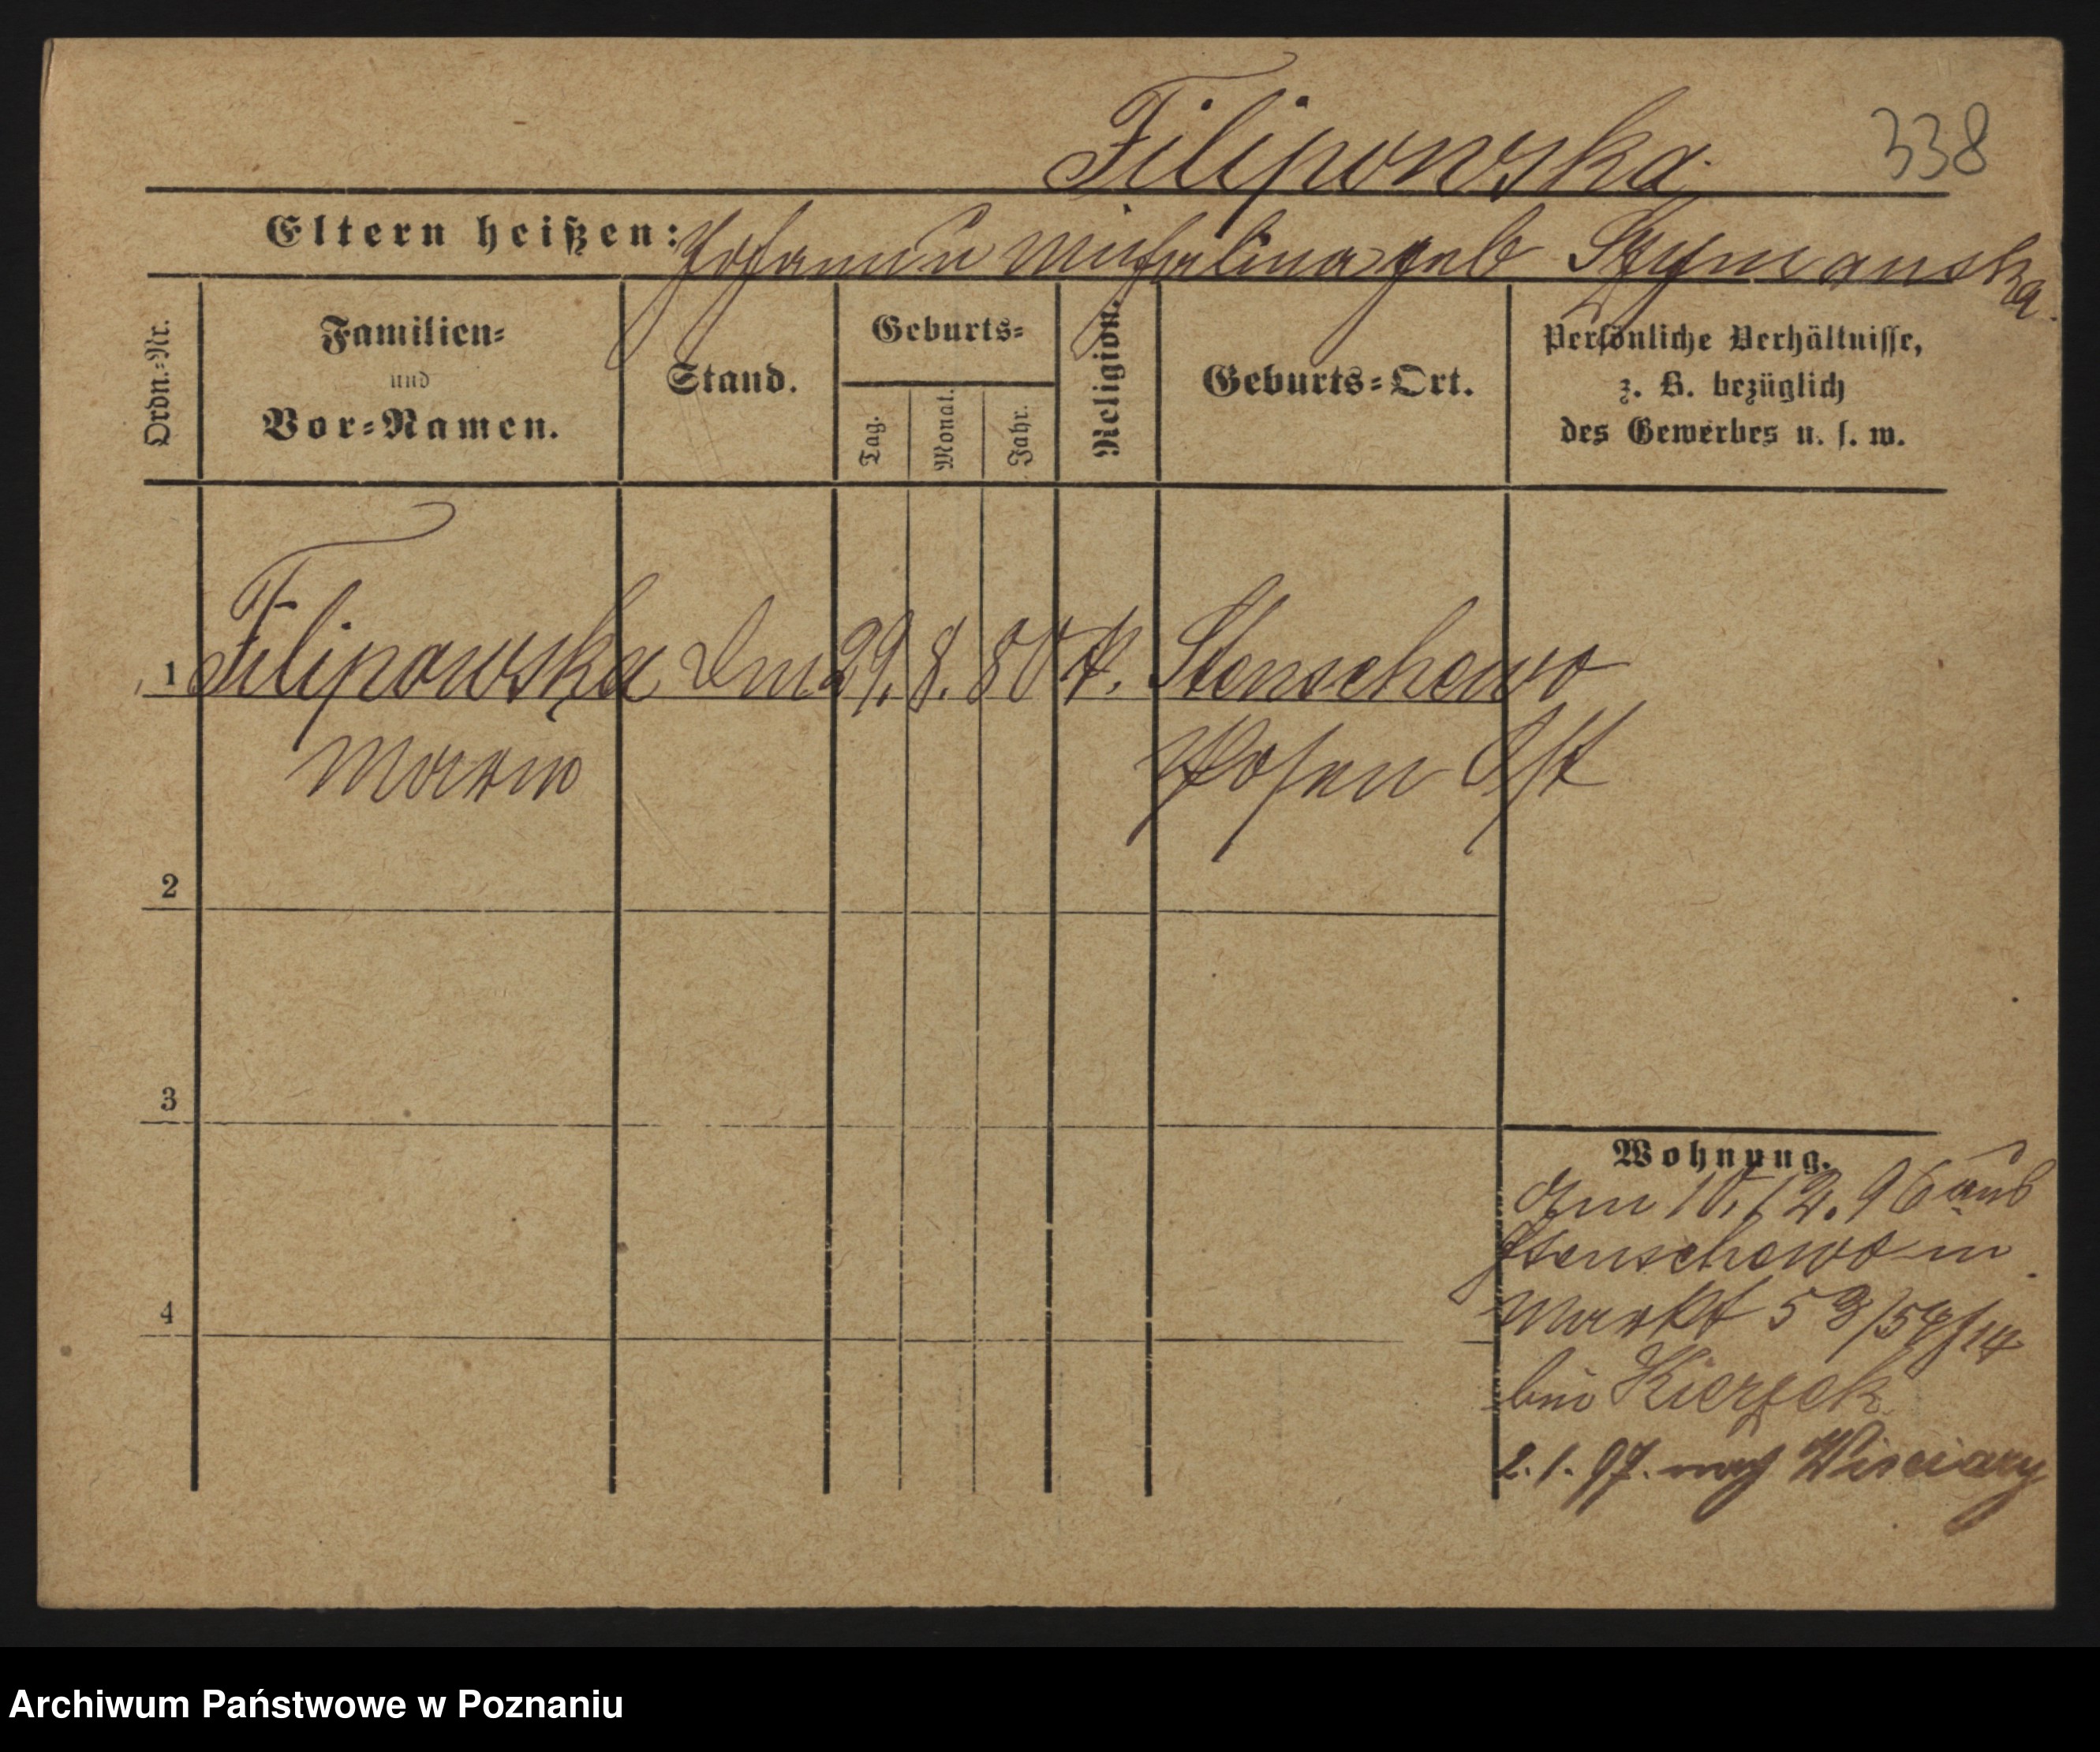 Filipowska
338
Eltern heißen: Johann u Michalina geb Szymanska.
Ordn.-Nr.
Familien- und Vor-Namen.
Stand.
Geburts-
Tag.
Monat.
Jahr.
Religion.
Geburts-Ort.
Persönliche Verhältnisse,
z. B. bezüglich
des Gewerbes u. s. w.
1 Filipowska 29. 8. 80 k. Stenschewo
Maria Posen Ost
2
3
4
Wohnung.
Am 10.12.96 aus
Stenschewo in
Markt 53/54/14
bei Kierzek
2.1.97. nach
Archiwum Państwowe w Poznaniu